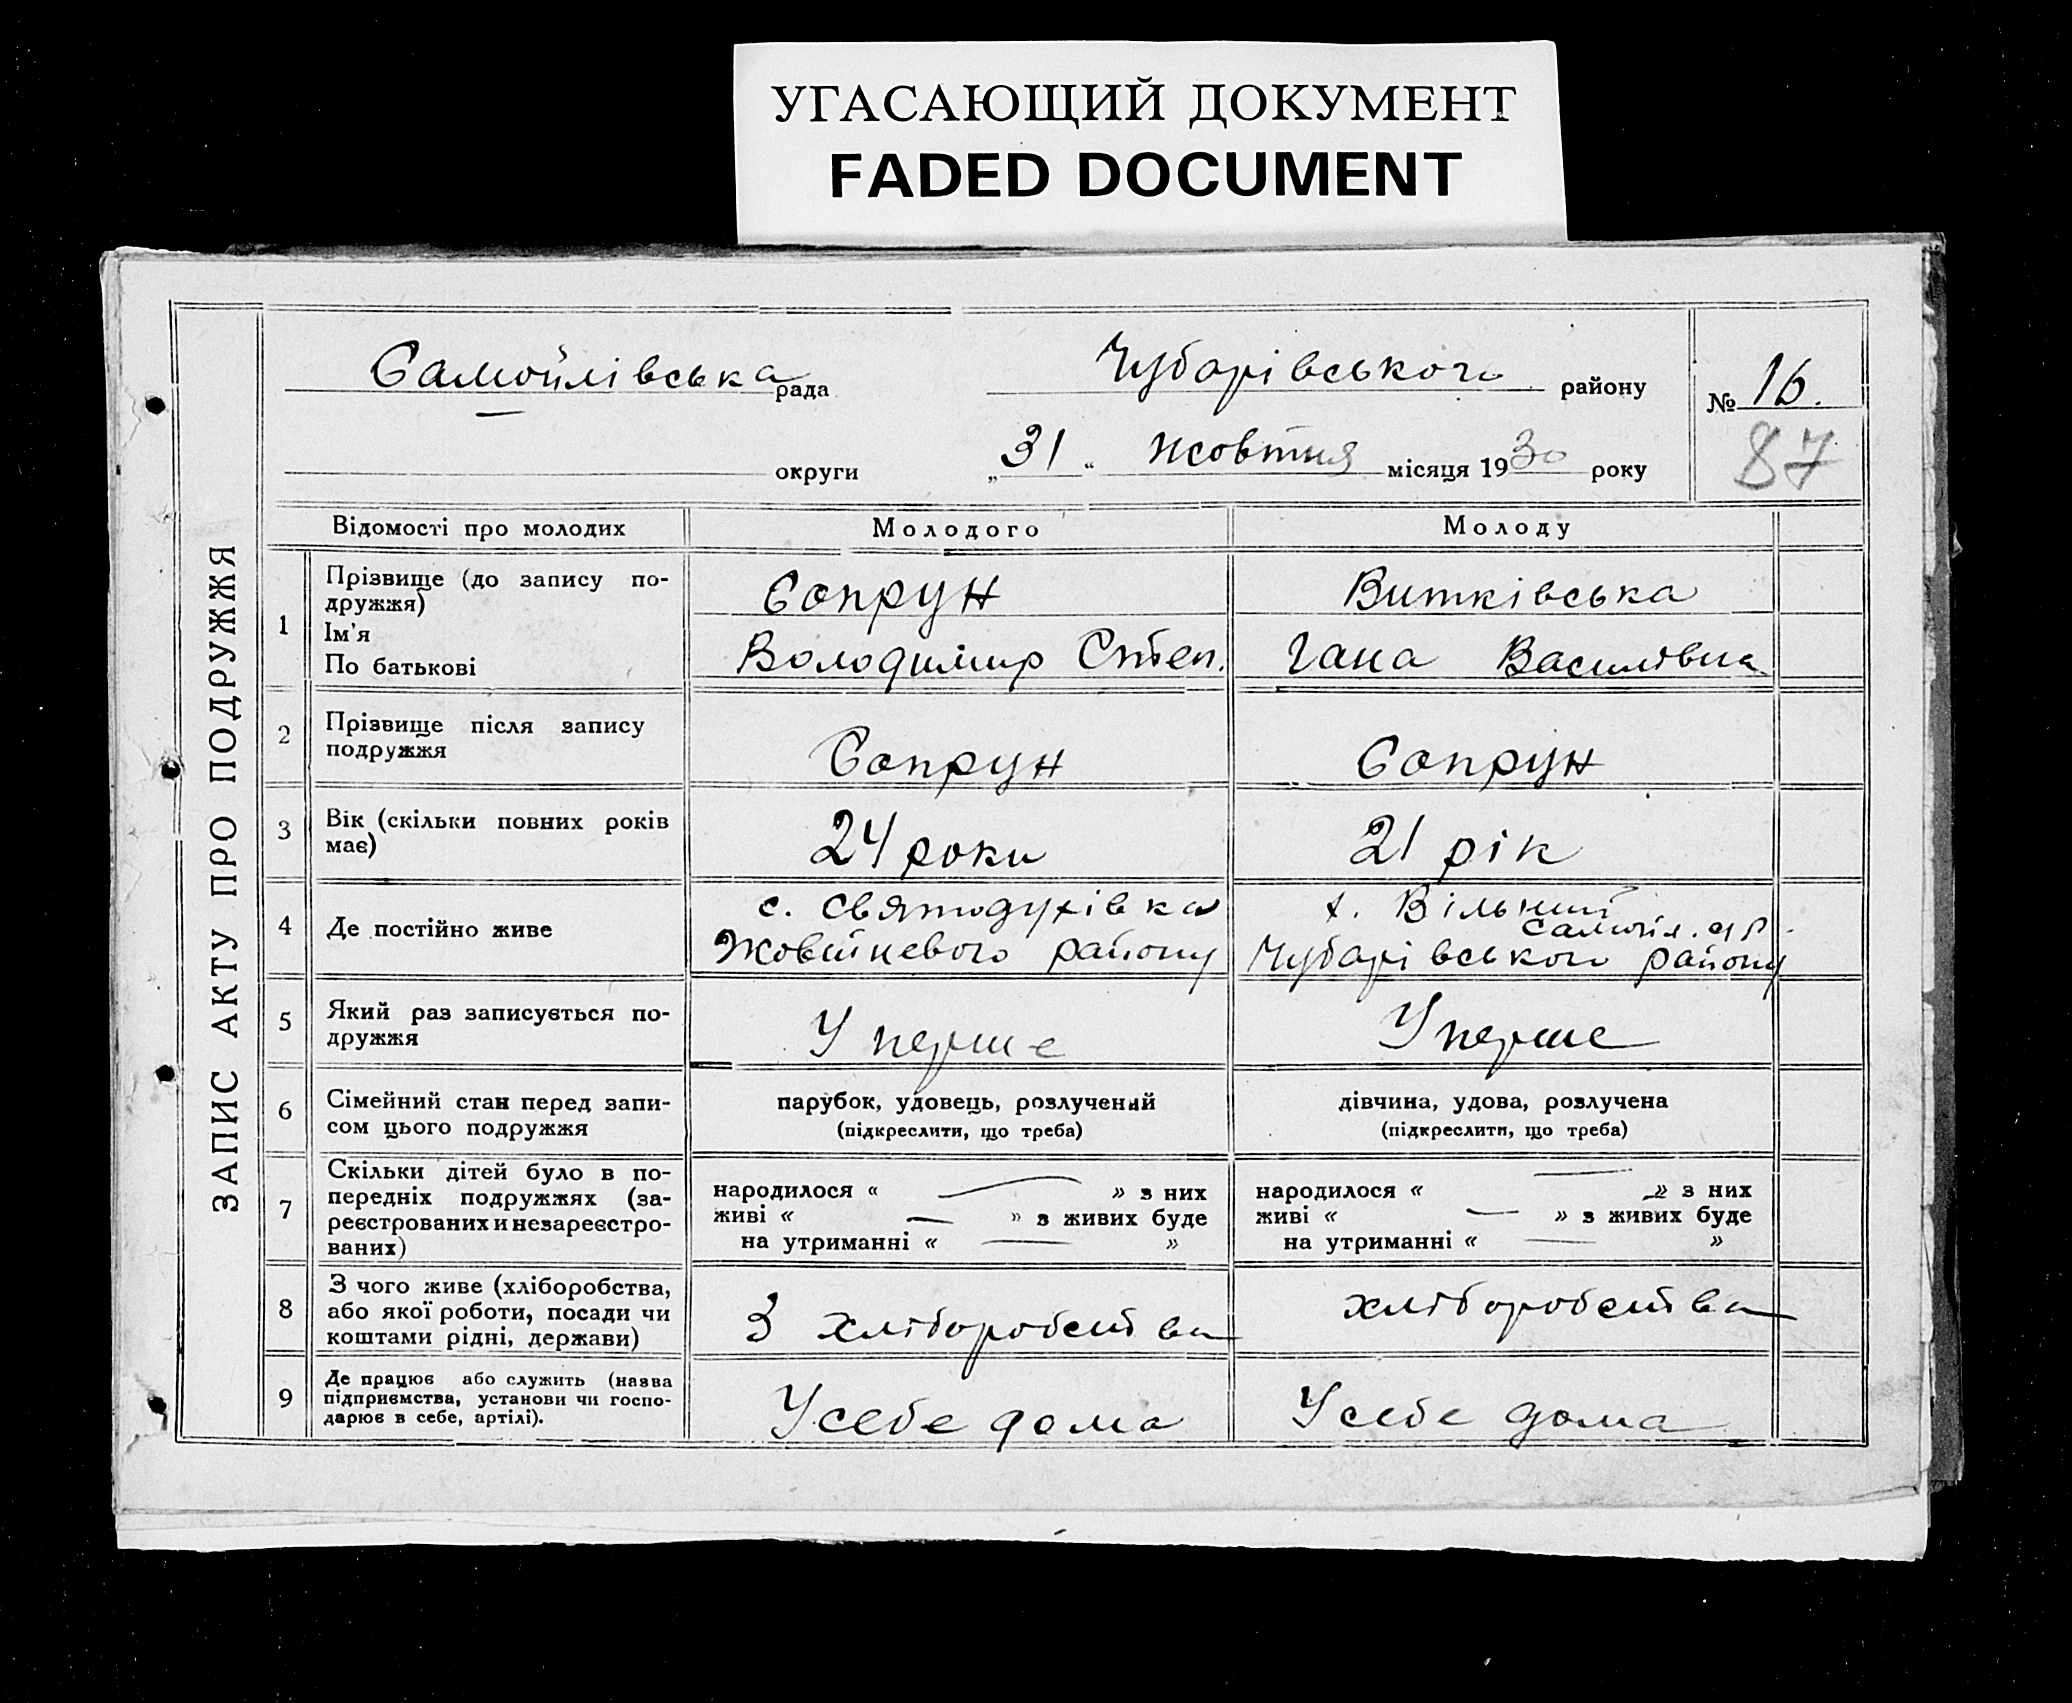 УГАСАЮЩИЙ ДОКУМЕНТ
FADED DOCUMENT
ЗАПИС АКТУ ПРО ПОДРУЖЖЯ
Самойлівська рада Чубарівського району № 16.
округи „31“ жовтня місяця 1930 року 87
Відомості про молодих Молодого Молоду
1 Прізвище (до запису по-
дружжя) Сопрун Витківська
Ім'я
По батькові Володимир Степ. Гана Василівна
2 Прізвище після запису
подружжя Сопрун Сопрун
3 Вік (скільки повних років
має) 24 роки 21 рік
4 Де постійно живе с. Святодухівка х. Вільний
Жовтневого району Чубарівського району
5 Який раз записується по-
дружжя Уперше Уперше
6 Сімейний стан перед запи-
сом цього подружжя
парубок, удовець, розлучений дівчина, удова, розлучена
(підкреслити, що треба) (підкреслити, що треба)
7 Скільки дітей було в по-
передніх подружжях (за-
реєстрованих и незареєстро-
ваних)
народилося « — » з них народилося « — » з них
живі « — » з живих буде живі « — » з живих буде
на утриманні « — » на утриманні « — »
8 З чого живе (хліборобства,
або якої роботи, посади чи
коштами рідні, держави)
З хліборобства хліборобства
9 Де працює або служить (назва
підприємства, установи чи госпо-
дарює в себе, артілі).
У себе дома У себе дома